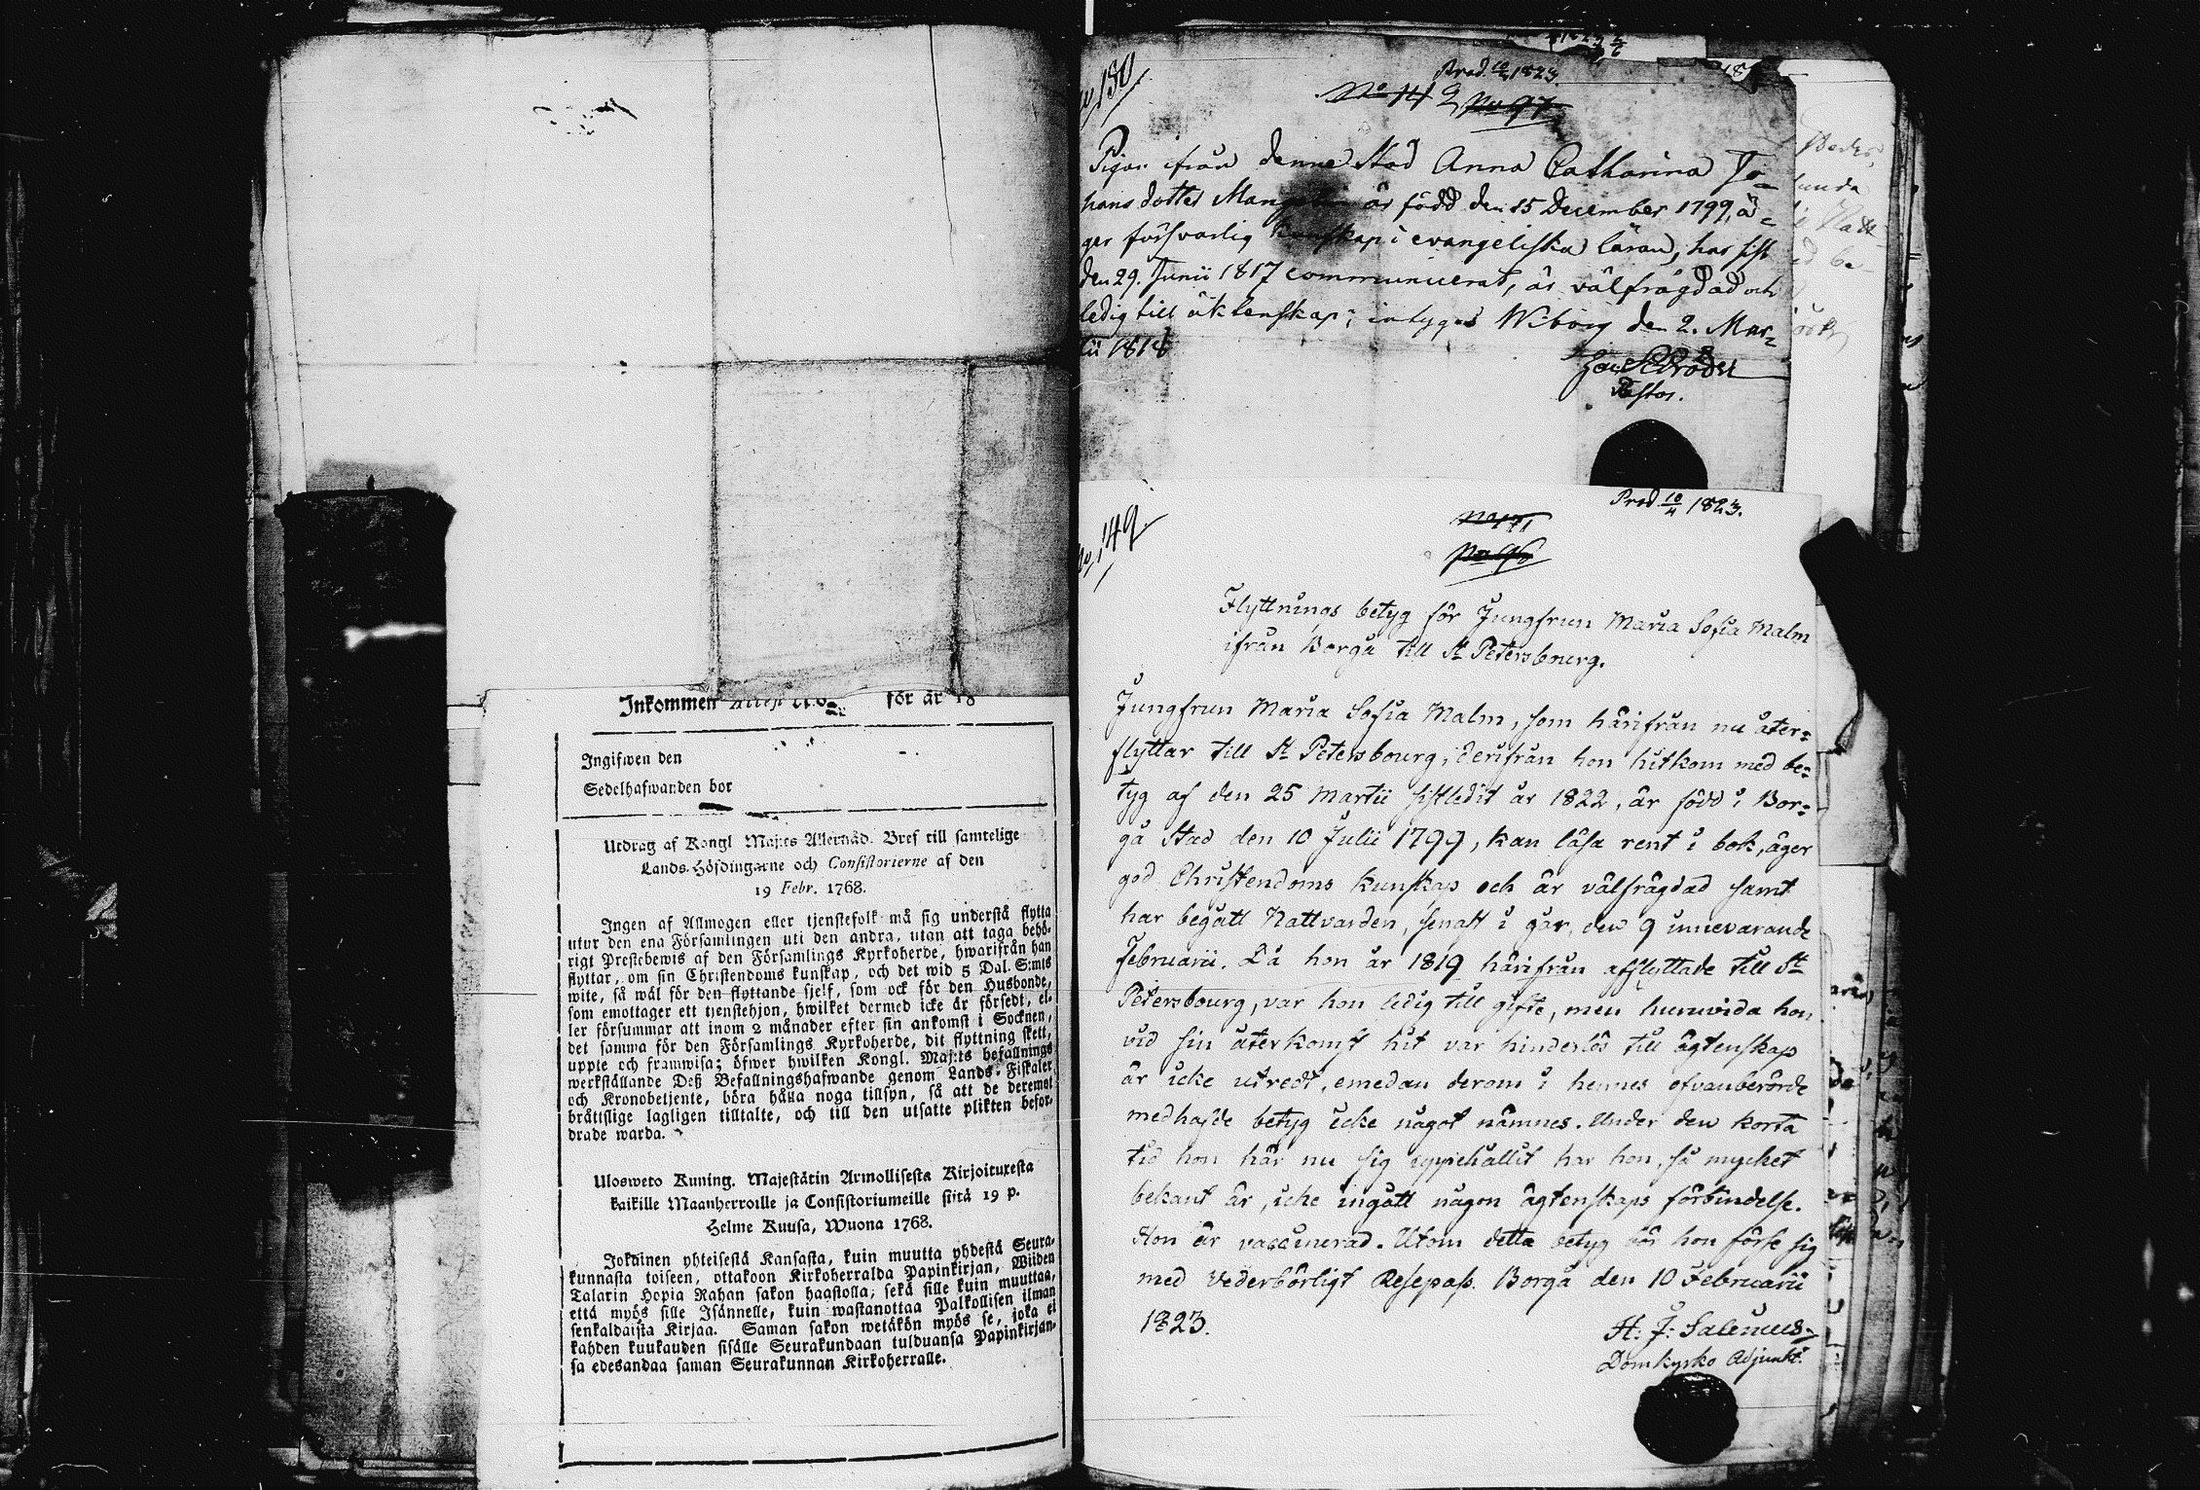 Inkommen för år 18
Ingifwen den
Sedelhafwanden bor
Utdrag af Kongl Maj:tes Allernåd. Bref till samtelige
Lands-Höfdingarne och Consistorierne af den
19 Febr. 1768.
Ingen af Allmogen eller tjenstefolk må sig understå flytta
utur den ena Församlingen uti den andra, utan att taga behö-
rigt Prestebewis af den Församlings Kyrkoherde, hwarifrån han
flyttar, om sin Christendoms kunskap, och det wid 5 Dal. S:mts
wite, så wäl för den flyttande sjelf, som ock för den Husbonde,
som emottager ett tjenstehjon, hwilket dermed icke är försedt, el-
ler försummar att inom 2 månader efter sin ankomst i Socknen,
det samma för den Församlings Kyrkoherde, dit flyttning skett,
uppte och framwisa; öfwer hwilken Kongl. Maj:ts befallnings
werkställande Deß Befallningshafwande genom Lands-Fiskaler
och Kronobetjente, böra hålla noga tillsyn, så att de deremot
bråttslige lagligen tilltalte, och till den utsatte plikten befor-
drade warda.
Ulosweto Kuning. Majestätin Armollisesta Kirjoituxesta
kaikille Maanherroille ja Consistoriumeille siitä 19 p.
Helme Kuusa, Wuona 1768.
Jokainen yhteisestä Kansasta, kuin muutta yhdestä Seura-
kunnasta toiseen, ottakoon Kirkoherralda Papinkirjan, Wiiden
Talarin Hopia Rahan sakon haastolla, sekä sille kuin muuttaa,
että myös sille Isännelle, kuin wastanottaa Palkollisen ilman
senkaldaista Kirjaa. Saman sakon wetäkön myös se, joka ei
kahden kuukauden sisälle Seurakundaan tulduansa Papinkirjan-
sa edesandaa saman Seurakunnan Kirkoherralle.
No 150
Prod. 10/4 1823
No 142 No 97
Pigan ifrån denne Stad Anna Catharina Jo-
hans dotter är född den 15 December 1799, ä-
ger försvarlig kunskap i evangeliska läran, har sist
den 29. Junii 1817 communicerat, är välfrägdad och
ledig till äktenskap; intygas Wiborg den 2. Mar-
tii 1818
Schröder
Pastor.
Prod. 10/4 1823.
No 149
No 96
Flyttnings betyg för Jungfrun Maria Sofia Malm
ifrån Borgå till St Petersbourg.
Jungfrun Maria Sofia Malm, som härifrån nu åter-
flyttar till St Petersbourg, derifrån hon hitkom med be-
tyg af den 25 Martii sistledit år 1822, är född i Bor-
gå Stad den 10 Julii 1799, kan läsa rent i bok, äger
god Christendoms kunskap och är välfrägdad samt
har begått Nattvarden, senast i går, den 9 innevarande
Februarii. Då hon år 1819 härifrån afflyttade till St
Petersbourg, var hon ledig till gifte, men huruvida hon
vid sin återkomst hit var hinderlös till ägtenskap
är icke utredt, emedan derom i hennes ofvanberörde
medhafde betyg icke något nämnes. Under den korta
tid hon här nu sig uppehållit har hon, så mycket
bekant är, icke ingått någon ägtenskaps förbindelse.
Hon är vaccinerad. Utom detta betyg bör hon förse sig
med vederbörligt Resepass. Borgå den 10 Februarii
1823.
H: J: Salenius
Domkyrko Adjunkt.